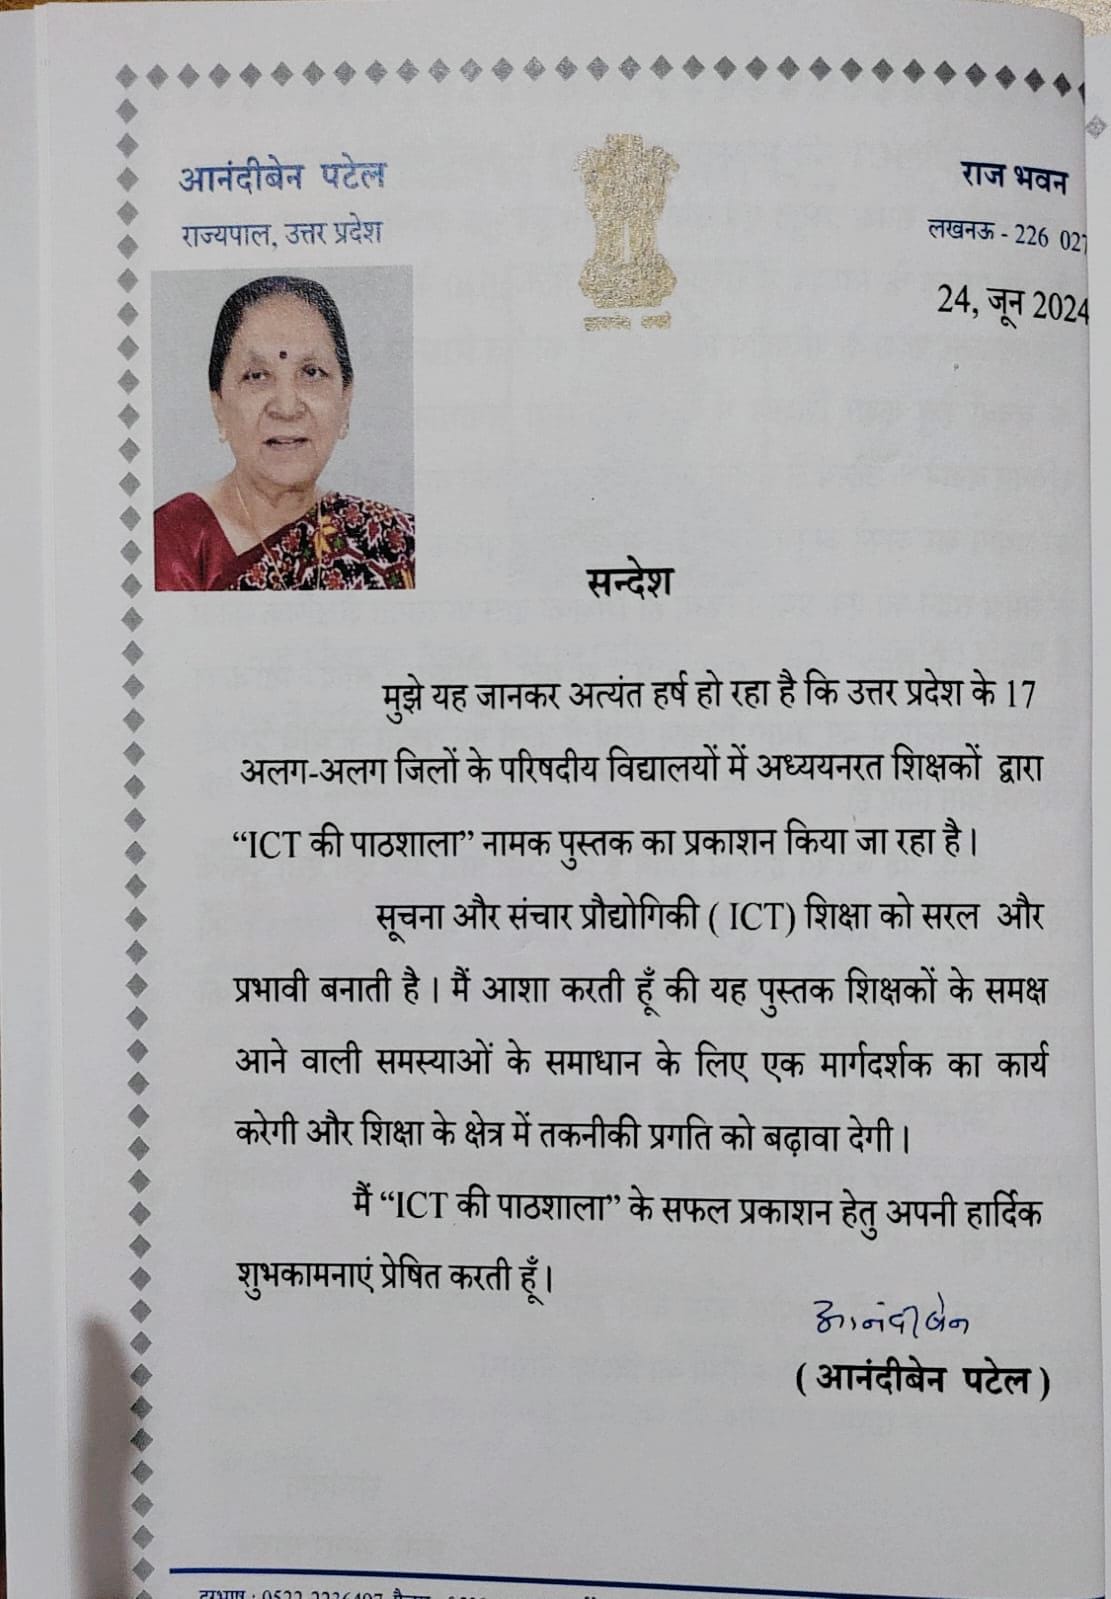 आनंदीबेन पटेल
राज्यपाल, उत्तर प्रदेश
राज भवन
लखनऊ - 226 027
24, जून 2024
सन्देश
मुझे यह जानकर अत्यंत हर्ष हो रहा है कि उत्तर प्रदेश के 17
अलग-अलग जिलों के परिषदीय विद्यालयों में अध्ययनरत शिक्षकों द्वारा
“ICT की पाठशाला” नामक पुस्तक का प्रकाशन किया जा रहा है।
सूचना और संचार प्रौद्योगिकी ( ICT) शिक्षा को सरल और
प्रभावी बनाती है। मैं आशा करती हूँ की यह पुस्तक शिक्षकों के समक्ष
आने वाली समस्याओं के समाधान के लिए एक मार्गदर्शक का कार्य
करेगी और शिक्षा के क्षेत्र में तकनीकी प्रगति को बढ़ावा देगी।
मैं “ICT की पाठशाला” के सफल प्रकाशन हेतु अपनी हार्दिक
शुभकामनाएं प्रेषित करती हूँ।
आनंदीबेन
( आनंदीबेन पटेल )
दूरभाष :